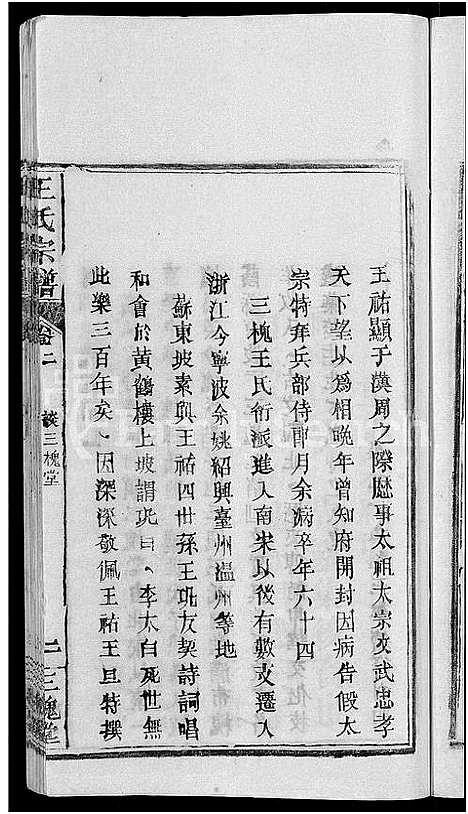 王祐顯于漢周之際歷事太祖太宗文武忠孝
天下望以爲相晚年曾知府開封因病告假太
宗特拜兵部侍郎月余病卒年六十四
三槐王氏衍派進入南宋以後有數支遷入
浙江今寧波余姚紹興臺州溫州等地
蘇東坡素與王祐四世孫王巩友契詩詞唱
和會於黄鶴樓上坡謂巩曰、李太白死世無
此樂三百年矣、因深深敬佩王祐王旦特撰
王氏宗譜
卷二
談三槐堂
二
三槐堂